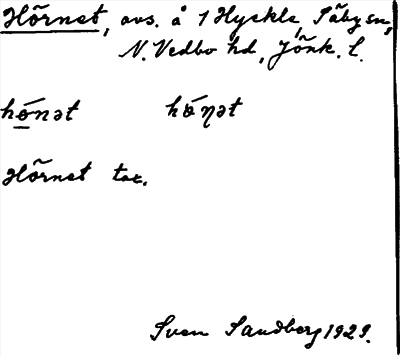 Hörnet, avs. å 1 Hyckle, Säby sn,
N. Vedbo hd, Jönk. l.
hó̱nət hǿɳət
Hörnet tax.
Sven Sandberg 1929.